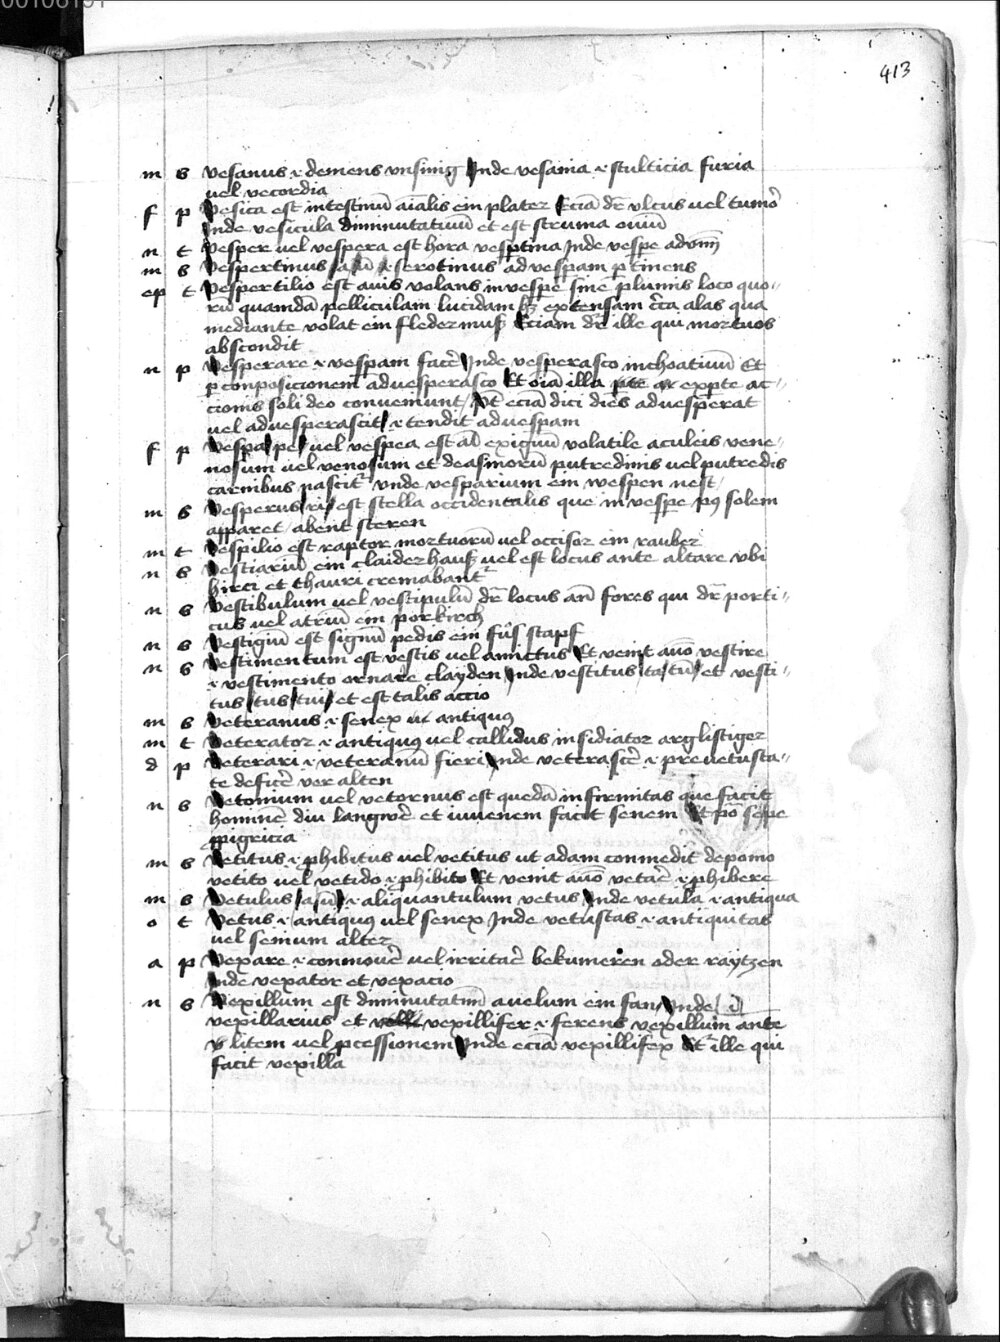 413
m s vesanus .i. demens unsinig Inde vesania .i. stulticia furia
vel vecordia
f p Vesica est intestinū aīalis ein plater Eciā dr̄ ulcus vel tumor
Inde vesicula diminutativū et est struma oviū
n t Vesper vel vespera est hora vesptina Inde vespe
m s Vespertinus /a/ū/ .i. serotinus ad vespam ptinens
ep t Vespertilio est avis volans in vespe sine plumis loco quo„
rū quamdā pelliculam lucidam extensam alas qua
mediante volat ein fledermuß Eciam dr̄ ille qui mortuos
abscondit
n p Vesperare .i. vespam facē Inde vesperasco inchoativū Et
p composicionem advesperasco Et oīa illa expte ac„
cionis soli deo conveniunt / Ut eciā dici dies advesperat
vel advesperascit / .i. tendit ad vespam
f p Vespa /pe/ vel vespea est exiguū volatile aculeis vene„
nosum vel venosum et de asinorū putredinis vel putredis
carnibus nascit unde vesparium ein wespen nest /
m s Vesperus /ri/ est stella occidentalis que in vespe solem
apparet / abent steren
m t Vespilio est raptor mortuorū vel occisor ein rauber
n s Vestiariū ein claider hauß vel est locus ante altare ubi
hirci et thauri cremabant
n s Vestibulum vel vestipulū dr̄ locus an̄ fores qui dr̄ porti„
cus vel atriū ein porkirch
n s Vestigiū est signū pedis ein fūs stapf
n s Vestimentum est vestis vel amictus Et venit vestire
.i. vestimento ornare clayden Inde vestitus /ta/tū/ et vesti„
tus /tus/tui/ et est talis actio
m s Veteranus .i. senex vel antiquus
m t Veterator .i. antiquus vel callidus insidiator arglistiger
d p Veterari .i. veteranū fieri Inde veterascē .i. pre vetusta„
te deficē ver alten
n s Vetornum vel vetornus est quedā infirmitas que facit
hominē diu langwē et iuvenem facit senem Et sepe
pigricia
m s Vetitus .i. phibitus vel vetitus ut adam commedit de pomo
vetito vel vetido .i. phibito Et venit vetaē .i. phibere
m s Vetulus /a/ū/ .i. aliquantulum vetus Inde vetula .i. antiqua
o t Vetus .i. antiquus vel senex Inde vetustas .i. antiquitas
vel senium alter
a p Vexare .i. conmovē vel irritaē bekumeren oder raytzen
Inde vexator et vexacio
n s Vexillum est diminutativū a velum ein fan / Inde
vexillarius et vexillifer .i. ferens vexillum ante
litem vel pcessionem Inde eciā vexillifex Et ille qui
facit vexilla